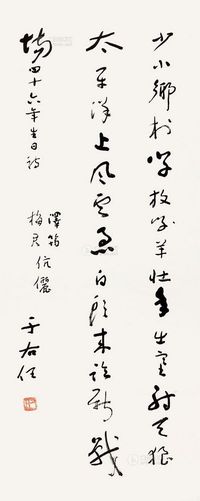 少小鄉村學牧羊壯年出塞射天狼
太平洋上風雲急白頭來新戰
場四十六年生日詩
澤笛
梅君伉儷
于右任